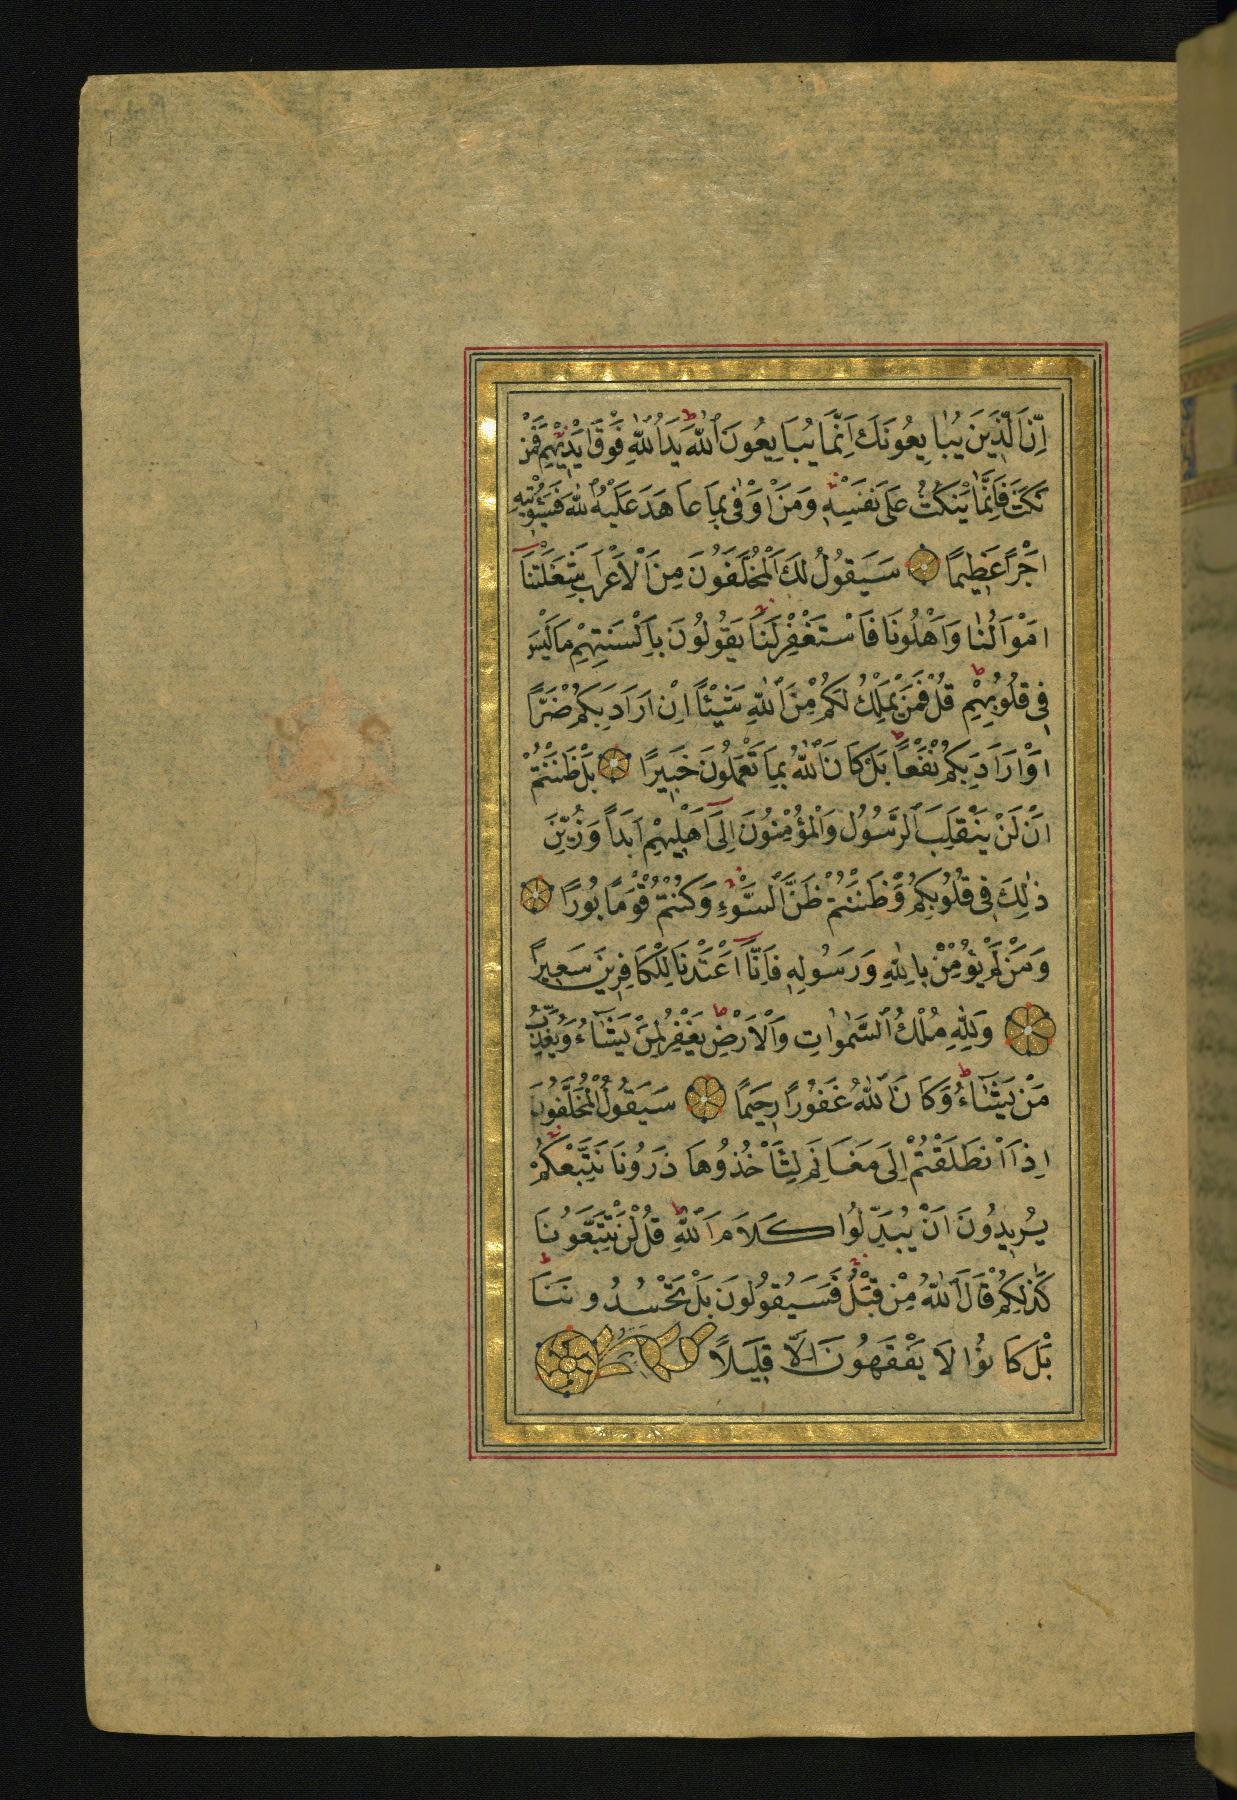 اِنَّ الَّذِينَ يُبَايِعُونَكَ اِنَّمَا يُبَايِعُونَ اللّٰهَ يَدُ اللّٰهِ فَوْقَ اَيْدِيهِمْ فَمَنْ
نَكَثَ فَاِنَّمَا يَنْكُثُ عَلٰى نَفْسِهِ وَمَنْ اَوْفٰى بِمَا عَاهَدَ عَلَيْهُ اللّٰهَ فَسَيُؤْتِيهِ
اَجْرًا عَظِيمًا سَيَقُولُ لَكَ الْمُخَلَّفُونَ مِنَ الْاَعْرَابِ شَغَلَتْنَا
اَمْوَالُنَا وَاَهْلُونَا فَاسْتَغْفِرْ لَنَا يَقُولُونَ بِاَلْسِنَتِهِمْ مَا لَيْسَ
فِي قُلُوبِهِمْ قُلْ فَمَنْ يَمْلِكُ لَكُمْ مِنَ اللّٰهِ شَيْئًا اِنْ اَرَادَ بِكُمْ ضَرًّا
اَوْ اَرَادَ بِكُمْ نَفْعًا بَلْ كَانَ اللّٰهُ بِمَا تَعْمَلُونَ خَبِيرًا بَلْ ظَنَنْتُمْ
اَنْ لَنْ يَنْقَلِبَ الرَّسُولُ وَالْمُؤْمِنُونَ اِلٰٓى اَهْلِيهِمْ اَبَدًا وَزُيِّنَ
ذٰلِكَ فِي قُلُوبِكُمْ وَظَنَنْتُمْ ظَنَّ السَّوْءِ وَكُنْتُمْ قَوْمًا بُورًا
وَمَنْ لَمْ يُؤْمِنْ بِاللّٰهِ وَرَسُولِهِ فَاِنَّٓا اَعْتَدْنَا لِلْكَافِرِينَ سَعِيرًا
وَلِلّٰهِ مُلْكُ السَّمٰوَاتِ وَالْاَرْضِ يَغْفِرُ لِمَنْ يَشَٓاءُ وَيُعَذِّبُ
مَنْ يَشَٓاءُ وَكَانَ اللّٰهُ غَفُورًا رَحِيمًا سَيَقُولُ الْمُخَلَّفُونَ
اِذَا انْطَلَقْتُمْ اِلٰى مَغَانِمَ لِتَأْخُذُوهَا ذَرُونَا نَتَّبِعْكُمْ
يُرِيدُونَ اَنْ يُبَدِّلُوا كَلَامَ اللّٰهِ قُلْ لَنْ تَتَّبِعُونَا
كَذٰلِكُمْ قَالَ اللّٰهُ مِنْ قَبْلُ فَسَيَقُولُونَ بَلْ تَحْسُدُونَنَا
بَلْ كَانُوا لَا يَفْقَهُونَ اِلَّا قَلِيلًا